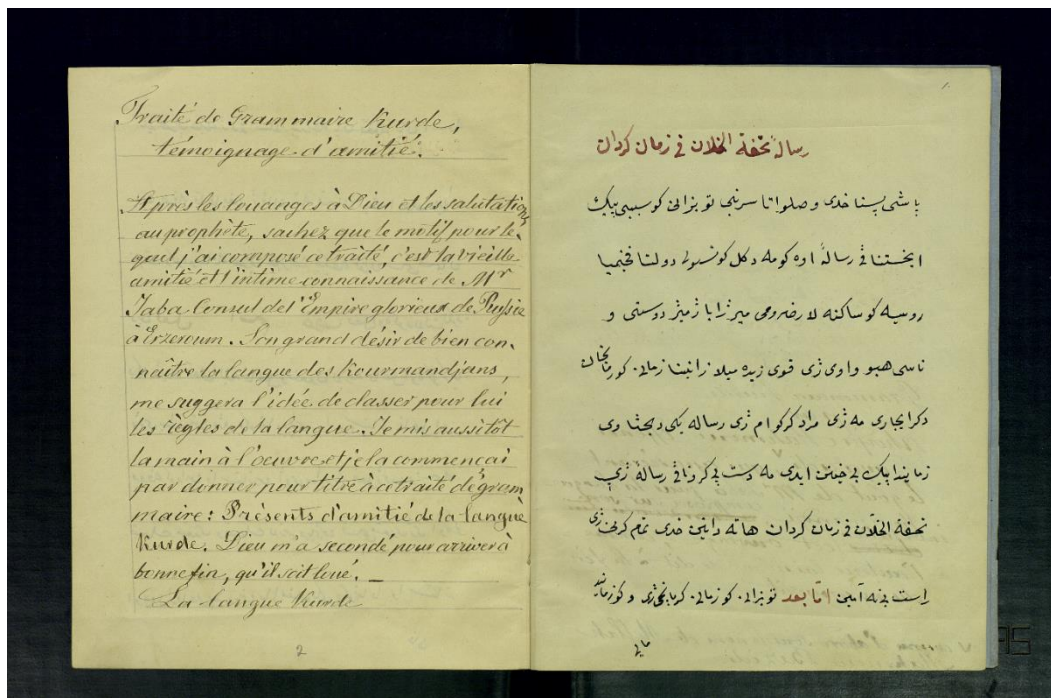 Traité de Grammaire Kurde,
témoignage d'amitié.
Après les louanges à Dieu et les salutations
au prophète, sachez que le motif pour le-
quel j'ai composé ce traité, c'est la vieille
amitié et l'intime connaissance de Mr
Jaba Consul de l'Empire glorieux de Russie
à Erzeroum. Son grand désir de bien con-
naître la langue des Kourmandjans,
me suggera l'idée de classer pour lui
les règles de la langue. Je mis aussitôt
la main à l'oeuvre et je la commençai
par donner pour titre à ce traité de gram
maire: Présents d'amitié de la langue
Kurde. Dieu m'a secondé pour arriver à
bonne fin, qu'il soit loué. —
La langue Kurde
2
1.
رسالهٔ تحفة الخلان في زمان كردان
پاشی پسنا خدی و صلواتا سرنبی تو بزانی كو سببی پیك
ایخستنا فی رسالهٔ اوه كو مه دكل كونسولی دولتا فخیمیا
روسیه كو ساكنه لارضرومی میرژابا ژمیژ دوستی و
ناسی هبو و اوی ژی قوی زیده میلا زانینا زمانی كورمانجان
دكر ایجاری مه ژی مراد كر كو ام ژی رساله یكی دبحثا وی
زمانیدا پیك بی خینن ایدی مه دست بی كرنا فی رسالهٔ ژی
تحفة الخلان فی زمان كردان هاته دانین خدی تمام كرنی ژی
راست بینه آمین اما بعد تو بزانی كو زمانی كرمانجی ژی و كو زمانید
مایی
95